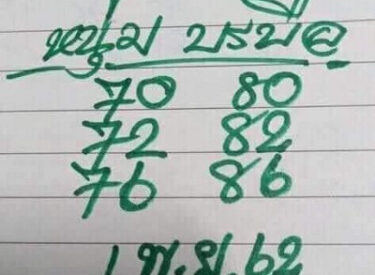 หนุ่ม บรบือ
70 80
72 82
76 86
1 พ.ย. 62